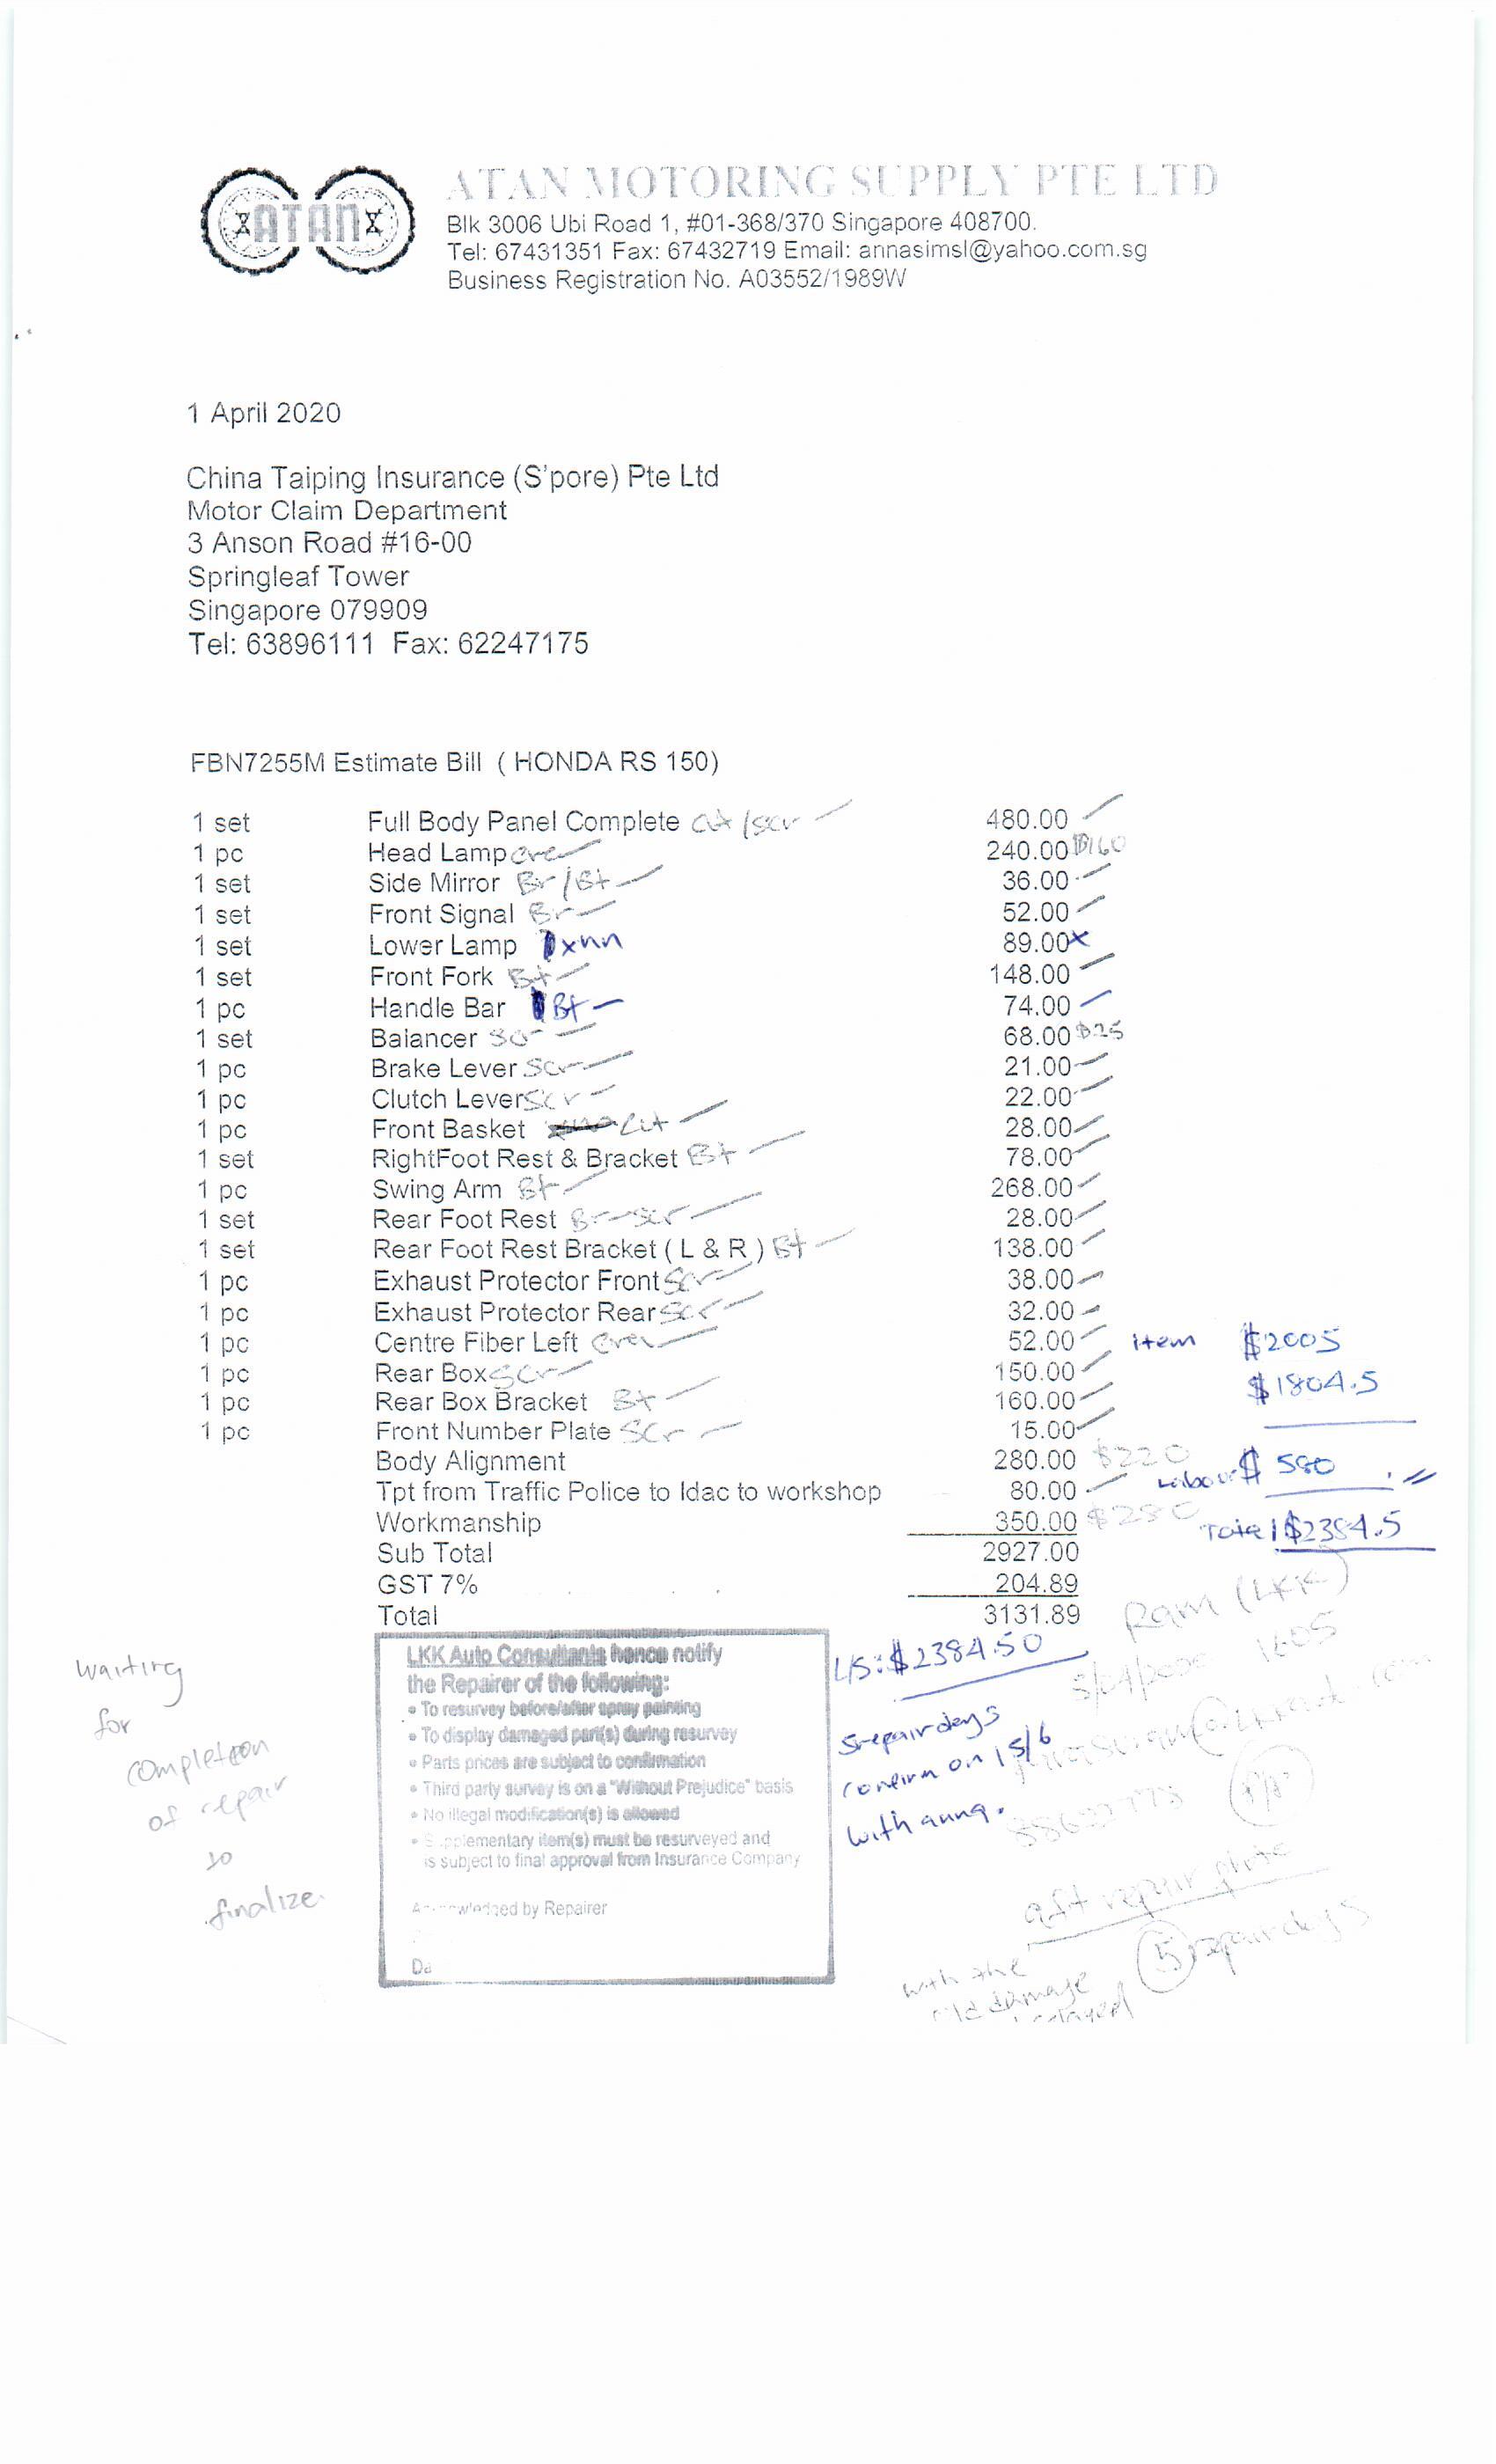 ATAN
ATAN MOTORING SUPPLY PTE LTD
Blk 3006 Ubi Road 1, #01-368/370 Singapore 408700.
Tel: 67431351 Fax: 67432719 Email: annasimsl@yahoo.com.sg
Business Registration No. A03552/1989W
1 April 2020
China Taiping Insurance (S'pore) Pte Ltd
Motor Claim Department
3 Anson Road #16-00
Springleaf Tower
Singapore 079909
Tel: 63896111 Fax: 62247175
FBN7255M Estimate Bill ( HONDA RS 150)
1 set Full Body Panel Complete cut/scr 480.00
1 pc Head Lamp 240.00 $160
1 set Side Mirror Br/Bt 36.00
1 set Front Signal Br 52.00
1 set Lower Lamp xnn 89.00 x
1 set Front Fork Bt 148.00
1 pc Handle Bar Bt 74.00
1 set Balancer scr 68.00 $25
1 pc Brake Lever scr 21.00
1 pc Clutch Lever scr 22.00
1 pc Front Basket cut 28.00
1 set RightFoot Rest & Bracket Bt 78.00
1 pc Swing Arm Bt 268.00
1 set Rear Foot Rest Br scr 28.00
1 set Rear Foot Rest Bracket ( L & R ) Bt 138.00
1 pc Exhaust Protector Front scr 38.00
1 pc Exhaust Protector Rear scr 32.00
1 pc Centre Fiber Left 52.00 item $2005
1 pc Rear Box scr 150.00 $1804.5
1 pc Rear Box Bracket Bt 160.00
1 pc Front Number Plate scr 15.00
Body Alignment 280.00 $220
Tpt from Traffic Police to Idac to workshop 80.00 Labour $ 580
Workmanship 350.00 $280 Total $2384.5
Sub Total 2927.00
GST 7% 204.89
Total 3131.89
Ram (LKK)
L/S: $2384.50
5 repair days
confirm on 15/6
with anna.
aft repair photo
5 repair days
with the
old damage
waiting
for
completion
of repair
to
finalize.
LKK Auto Consultants hence notify
the Repairer of the following:
• To resurvey before/after spray painting
• To display damaged part(s) during resurvey
• Parts prices are subject to confirmation
• Third party survey is on a "Without Prejudice" basis
• No illegal modification(s) is allowed
• Supplementary item(s) must be resurveyed and
is subject to final approval from Insurance Company
Acknowledged by Repairer
Da